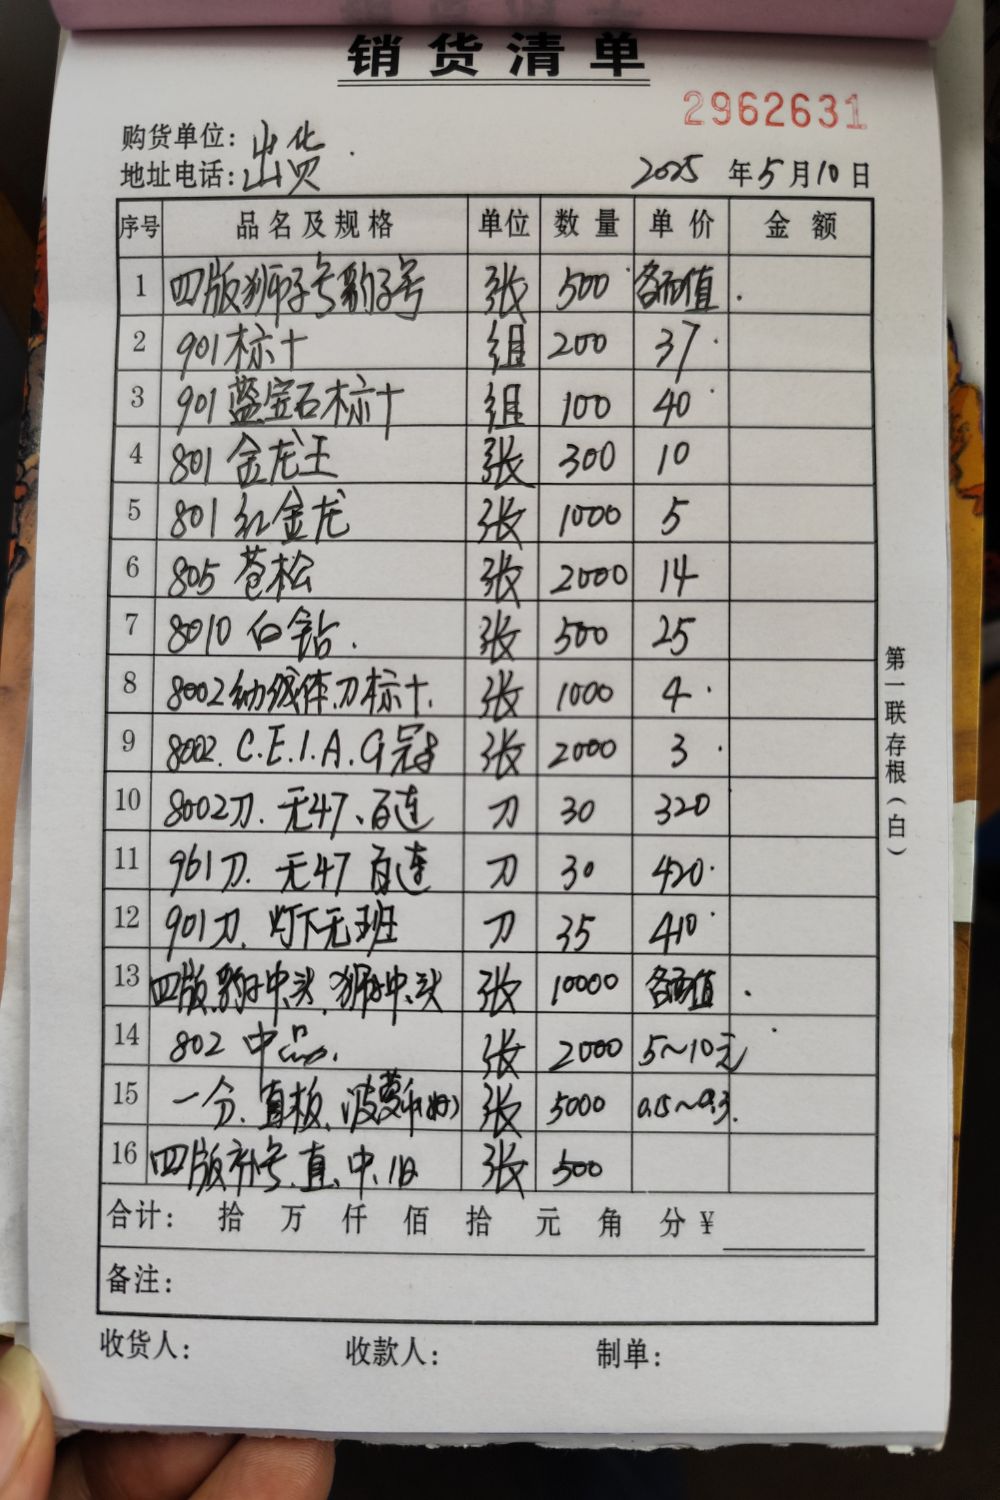 销货清单
2962631
购货单位: 出货
地址电话:
2025 年 5 月 10 日
序号 品名及规格 单位 数量 单价 金额
1 四版狮子号豹子号 张 500 各面值
2 901标十 组 200 37
3 901蓝宝石标十 组 100 40
4 801 金龙王 张 300 10
5 801 红金龙 张 1000 5
6 805 苍松 张 2000 14
7 8010 白钻. 张 500 25
8 8002幼线体.刀标十. 张 1000 4
9 8002. C.E.I.A.G冠 张 2000 3
10 8002刀. 无47、百连 刀 30 320
11 961刀. 无47 百连 刀 30 420
12 901刀. 灯下无斑 刀 35 410
13 四版.豹子中.头.狮子中.头 张 10000 各面值
14 802 中品. 张 2000 5~10元
15 一分.直板.菠萝 张 5000 0.15~0.3
16 四版补号.直.中.旧 张 500
合计: 拾 万 仟 佰 拾 元 角 分 ¥
备注:
收货人: 收款人: 制单:
第一联存根(白)